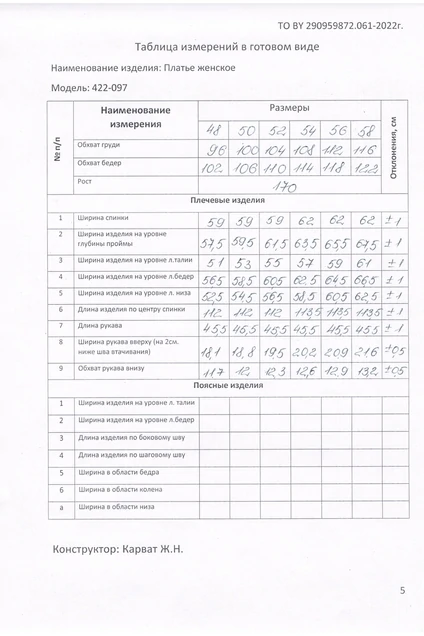 ТО BY 290959872.061-2022г.
Таблица измерений в готовом виде
Наименование изделия: Платье женское
Модель: 422-097
№ п/п Наименование измерения Размеры Отклонения, см
48 50 52 54 56 58
Обхват груди 96 100 104 108 112 116
Обхват бедер 102 106 110 114 118 122
Рост 170
Плечевые изделия
1 Ширина спинки 59 59 59 62 62 62 ±1
2 Ширина изделия на уровне глубины проймы 57,5 59,5 61,5 63,5 65,5 67,5 ±1
3 Ширина изделия на уровне л.талии 51 53 55 57 59 61 ±1
4 Ширина изделия на уровне л.бедер 56,5 58,5 60,5 62,5 64,5 66,5 ±1
5 Ширина изделия на уровне л. низа 52,5 54,5 56,5 58,5 60,5 62,5 ±1
6 Длина изделия по центру спинки 112 112 112 113,5 113,5 113,5 ±1
7 Длина рукава 45,5 45,5 45,5 45,5 45,5 45,5 ±1
8 Ширина рукава вверху (на 2см. ниже шва втачивания) 18,1 18,8 19,5 20,2 20,9 21,6 ±0,5
9 Обхват рукава внизу 11,7 12 12,3 12,6 12,9 13,2 ±0,5
Поясные изделия
1 Ширина изделия на уровне л. талии
2 Ширина изделия на уровне л.бедер
3 Длина изделия по боковому шву
4 Длина изделия по шаговому шву
5 Ширина в области бедра
6 Ширина в области колена
а Ширина в области низа
Конструктор: Карват Ж.Н.
5